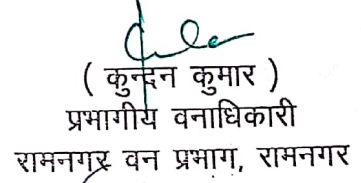 ( कुन्दन कुमार )
प्रभागीय वनाधिकारी
रामनगर वन प्रभाग, रामनगर